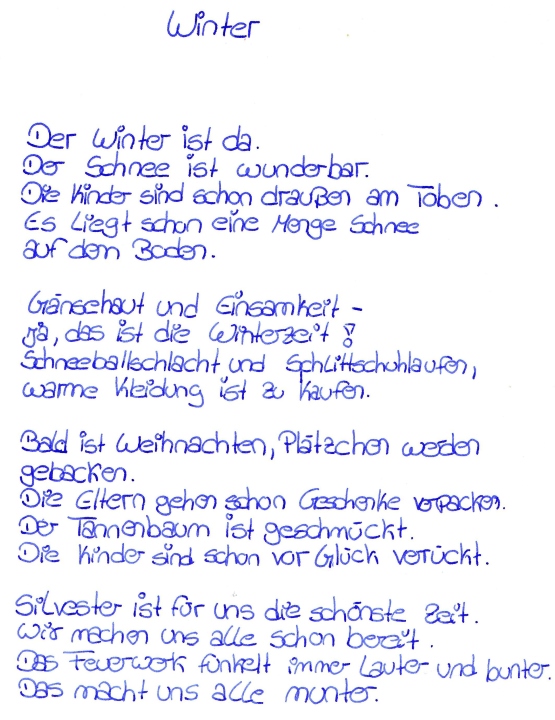 Winter
Der Winter ist da.
Der Schnee ist wunderbar.
Die Kinder sind schon draußen am Toben.
Es liegt schon eine Menge Schnee
auf dem Boden.
Gänsehaut und Einsamkeit -
ja, das ist die Winterzeit!
Schneeballschlacht und Schlittschuhlaufen,
warme Kleidung ist zu kaufen.
Bald ist Weihnachten, Plätzchen werden
gebacken.
Die Eltern gehen schon Geschenke verpacken.
Der Tannenbaum ist geschmückt.
Die Kinder sind schon vor Glück verückt.
Silvester ist für uns die schönste Zeit.
Wir machen uns alle schon bereit.
Das Feuerwerk funkelt immer lauter und bunter.
Das macht uns alle munter.